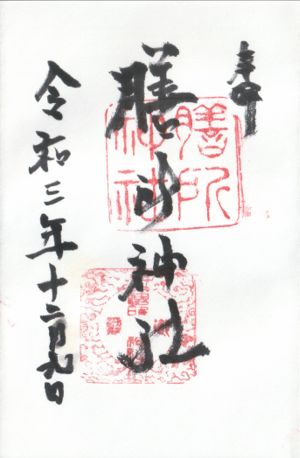 奉拝
膳所神社
膳所
神社
令和三年十二月九日